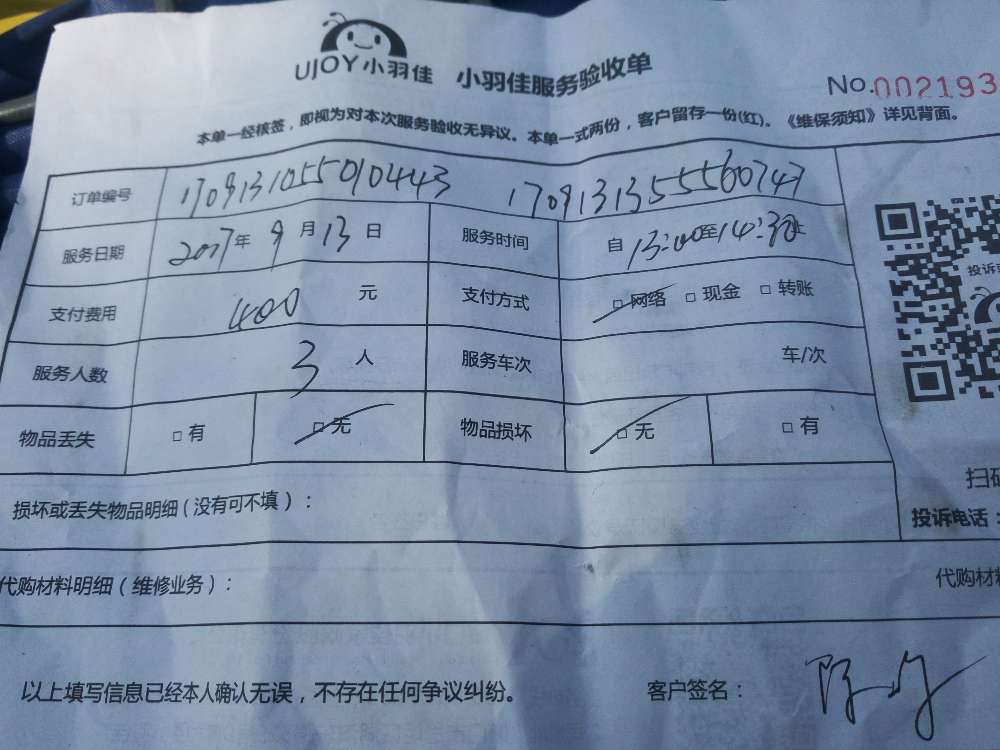 UJOY小羽佳 小羽佳服务验收单
No.002193
本单一经核签，即视为对本次服务验收无异议。本单一式两份，客户留存一份(红)。《维保须知》详见背面。
订单编号 1709131055010443 17091313555560747
服务日期 2017年 9月 13日 服务时间 自 13:00至14:30止
支付费用 400 元 支付方式 □网络 □现金 □转账
服务人数 3 人 服务车次 车/次
物品丢失 □有 □无 物品损坏 □无 □有
损坏或丢失物品明细(没有可不填)：
投诉电话：
代购材料明细(维修业务)： 代购材料
以上填写信息已经本人确认无误，不存在任何争议纠纷。 客户签名：